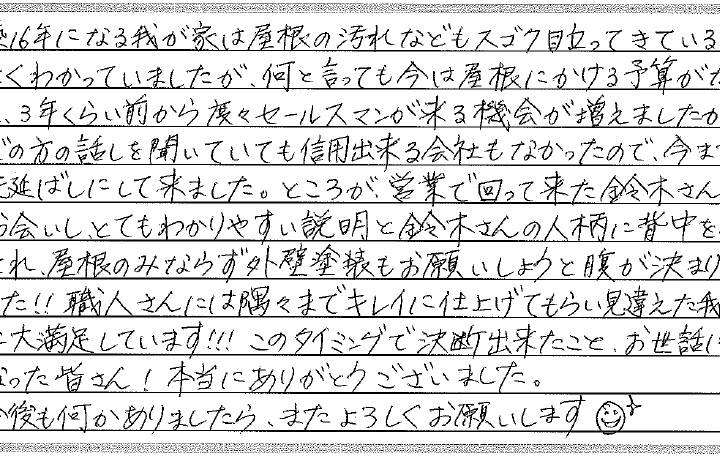 16年になる我が家は屋根の汚れなどもスゴク目立ってきている
くわかっていましたが、何と言っても今は屋根にかける予算が
、3年くらい前から度々セールスマンが来る機会が増えましたが
の方の話しを聞いていても信用出来る会社もなかったので、今ま
延ばしにして来ました。ところが、営業で回って来た鈴木さん
会いし、とてもわかりやすい説明と鈴木さんの人柄に背中を
れ、屋根のみならず外壁塗装もお願いしようと腹が決まり
た!! 職人さんには隅々までキレイに仕上げてもらい見違えた我
大満足しています!!! このタイミングで決断出来たこと、お世話に
なった皆さん！本当にありがとうございました。
後も何かありましたら、またよろしくお願いします